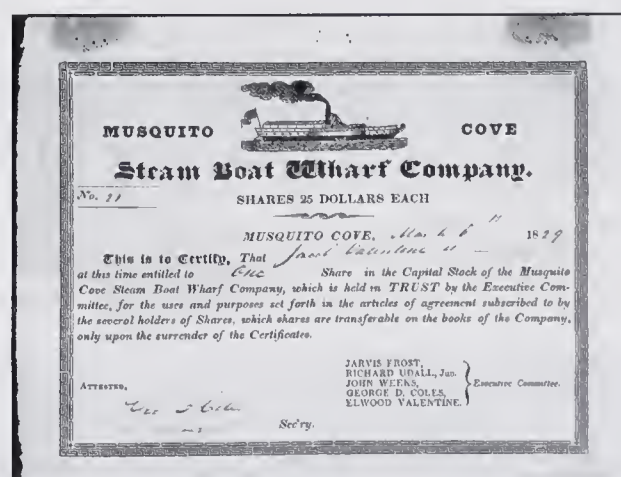 MUSQUITO COVE
Steam Boat Wharf Company.
No. 21
SHARES 25 DOLLARS EACH
MUSQUITO COVE, March 6th 1829
This is to Certify, That Jacob Valentine is
at this time entitled to One Share in the Capital Stock of the Musquito
Cove Steam Boat Wharf Company, which is held in TRUST by the Executive Com-
mittee, for the uses and purposes set forth in the articles of agreement subscribed to by
the several holders of Shares, which shares are transferable on the books of the Company,
only upon the surrender of the Certificates.
JARVIS FROST,
RICHARD UDALL, Jun.
JOHN WEEKS,
GEORGE D. COLES,
ELWOOD VALENTINE.
Executive Committee.
ATTESTED,
Sec'ry.